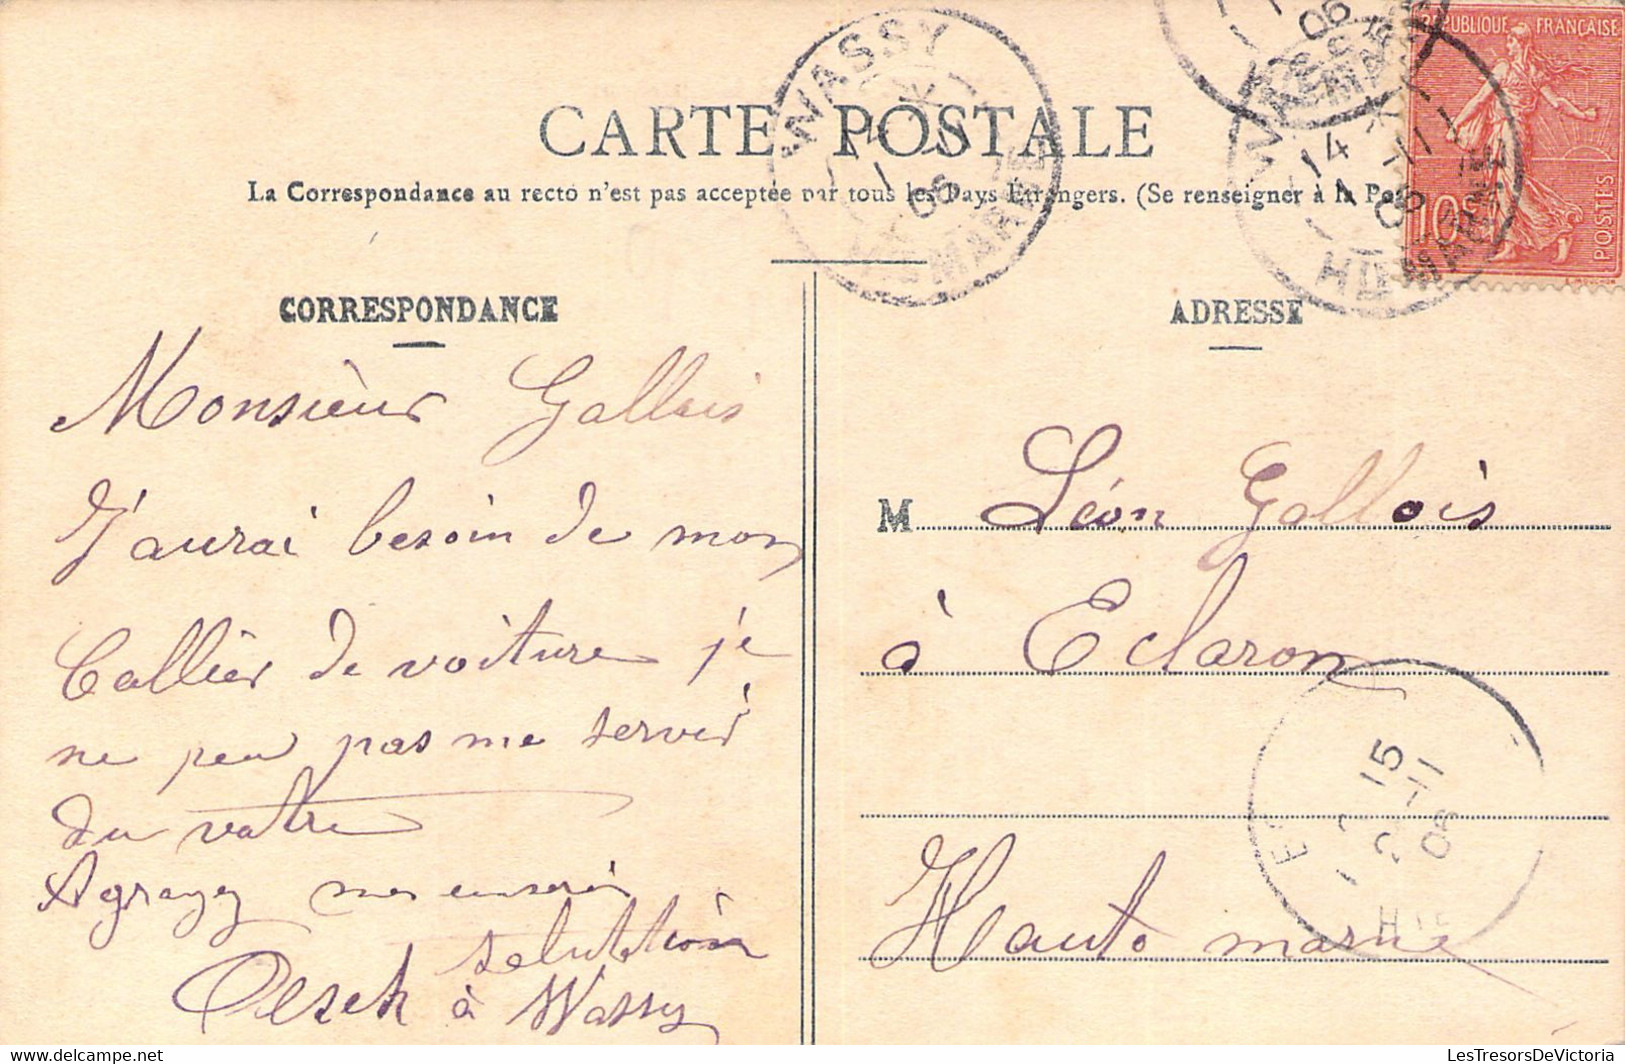 CARTE POSTALE
La Correspondance au recto n'est pas acceptée par tous les Pays Étrangers. (Se renseigner à la Pos
CORRESPONDANCE
Monsieur Gallois
J'aurai besoin de mon
Collier de voiture je
ne peu pas me servir
du vatre
Agreyez mes
salutation
à Wassy
ADRESSE
M Léon Gallois
à Eclaron
Haute marne
RÉPUBLIQUE FRANÇAISE
10c
POSTES
WASSY
14
1 -11
06
HTE MARNE
WASSY
06
HTE MARNE
15
2 -11
06
LesTresorsDeVictoria